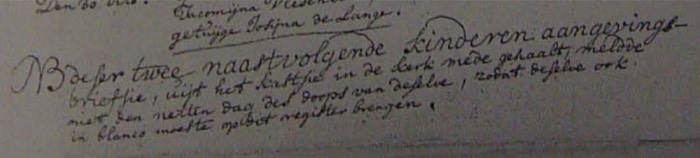 Den 30 dito.
Jacomijna
getuijge Josijna de Lange.
NB deser twee naastvolgende kinderen aangevings-
briefjie, uijt het kastjie in de kerk mede gehaalt, meldde
niet den netten dag des doops van deselve, zodat deselve ook
in blanco moeste op dit register brengen.